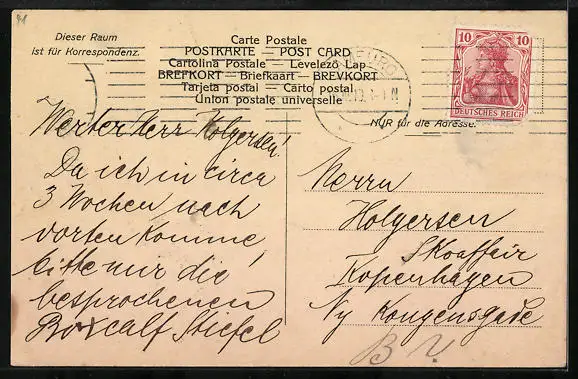 Dieser Raum
ist für Korrespondenz.
Carte Postale
POSTKARTE — POST CARD
Cartolina Postale — Levelező Lap
BREFKORT — Briefkaart — BREVKORT
Tarjeta postal — Carto postal
Union postale universelle
NUR für die Adresse.
10 10
DEUTSCHES REICH
Werter Herr Holgersen!
Da ich in circa
3 Wochen nach
dorten komme,
bitte mir die
besprochenen
Boxcalf Stiefel
Herrn
Holgersen
Skoaffair
Kopenhagen
Ny Kongensgade
B V.